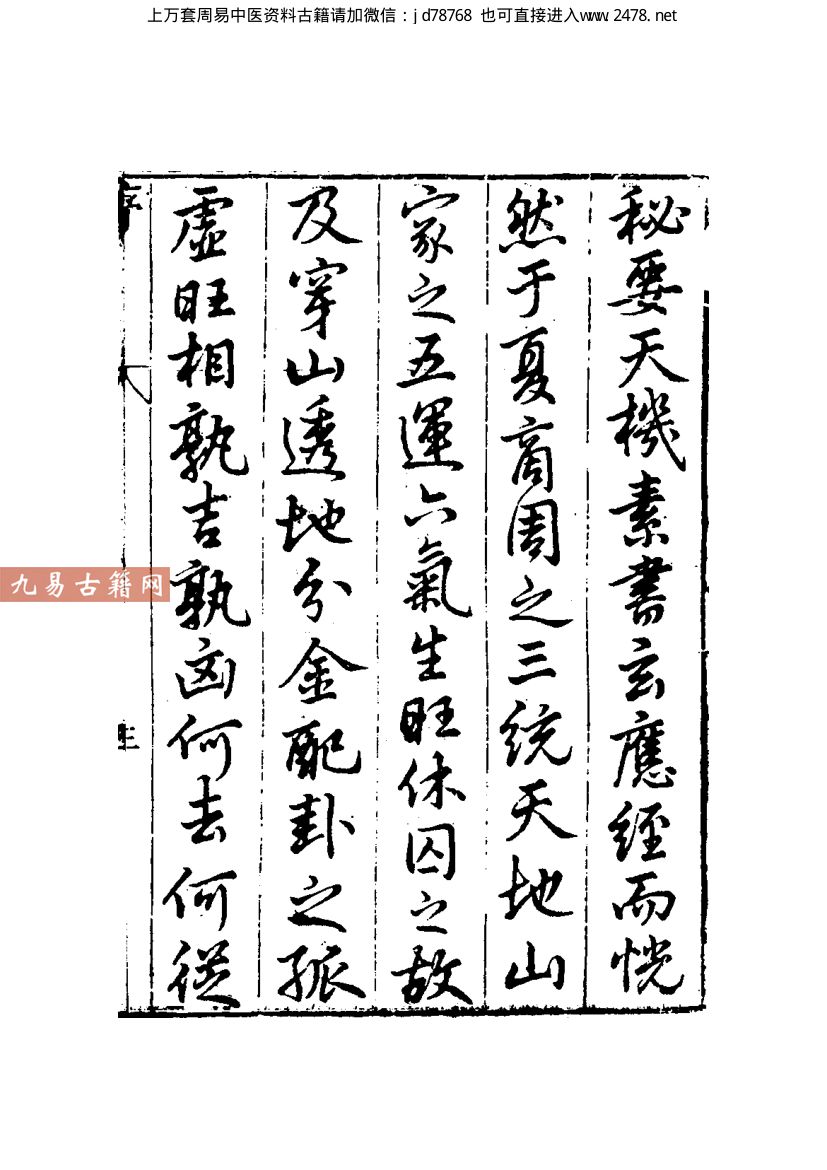 上万套周易中医资料古籍请加微信：jd78768 也可直接进入www.2478.net
秘要天機素書玄應經而恍
然于夏商周之三統天地山
家之五運六氣生旺休囚之故
及穿山透地分金配卦之孤
虛旺相孰吉孰凶何去何從
序
九易古籍网